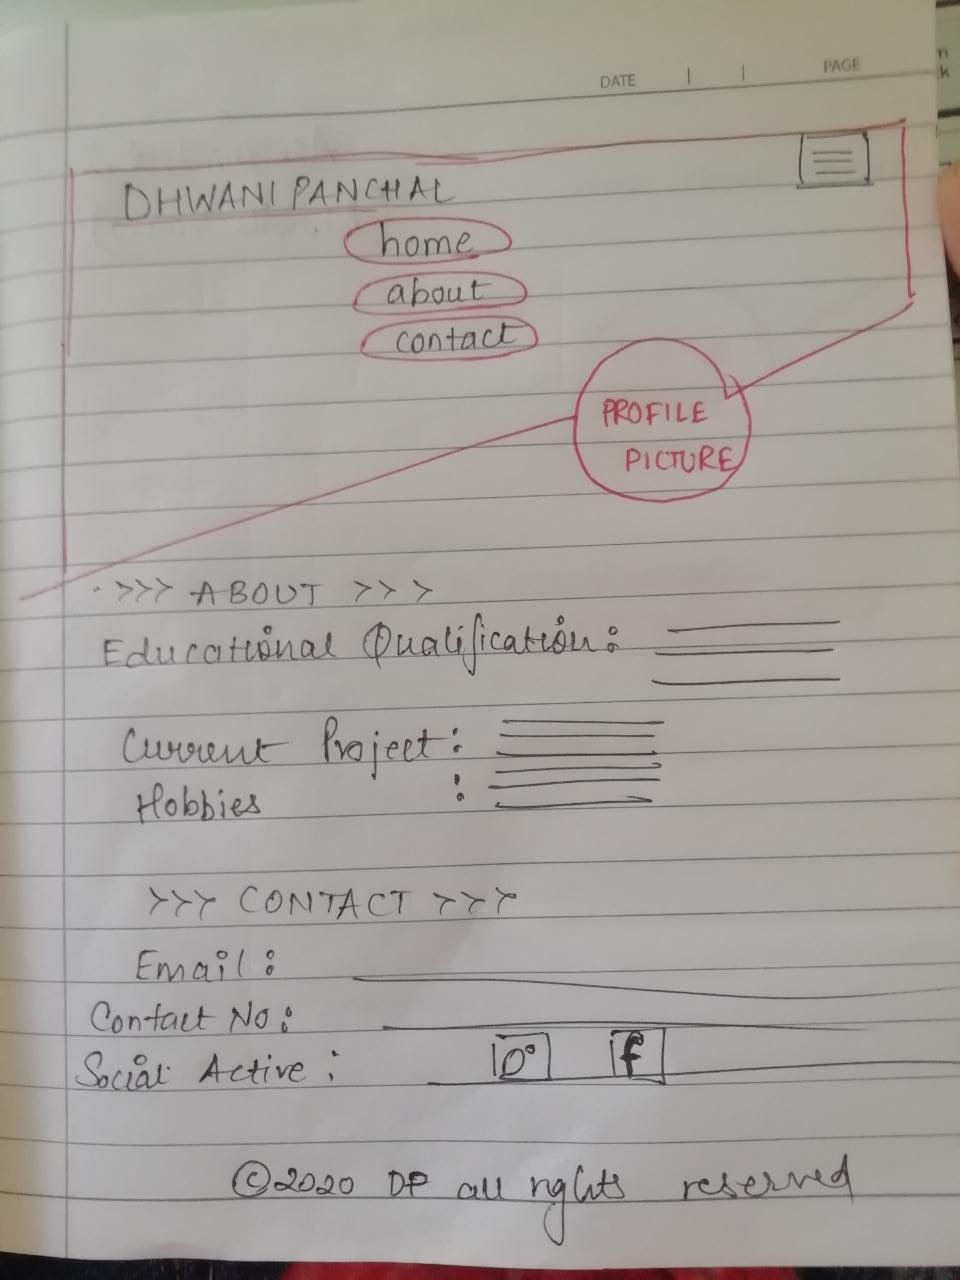 DATE | | PAGE
DHWANI PANCHAL
home
about
contact
PROFILE
PICTURE
>>> ABOUT >>>
Educational Qualification:
Current Project:
Hobbies :
>>> CONTACT >>>
Email:
Contact No:
Social Active: f
©2020 DP all rights reserved